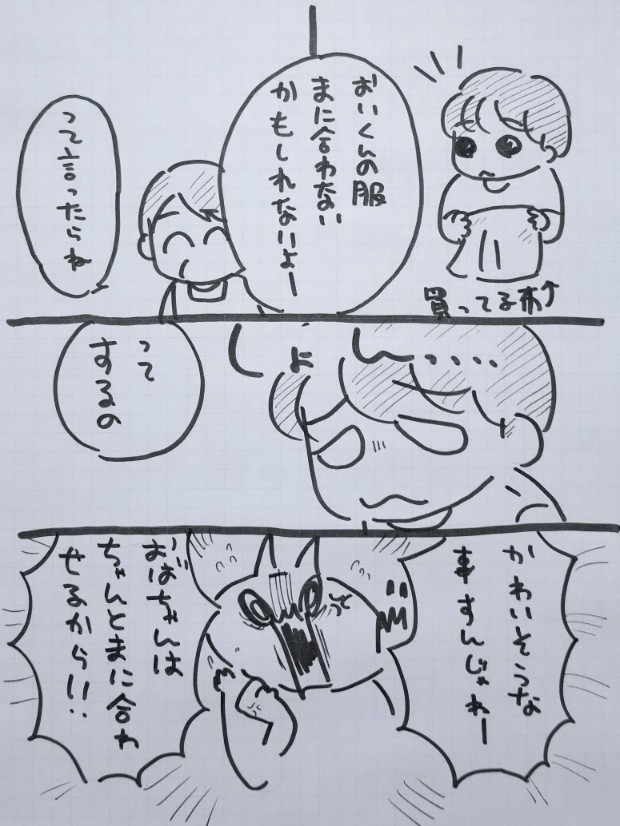 おいくんの服
まに合わない
かもしれないよー
って言ったらね
買ってる布↑
しょ
ん‥‥
って
するの
かわいそうな
事すんじゃねー
おばちゃんは
ちゃんとまに合わ
せるから!!